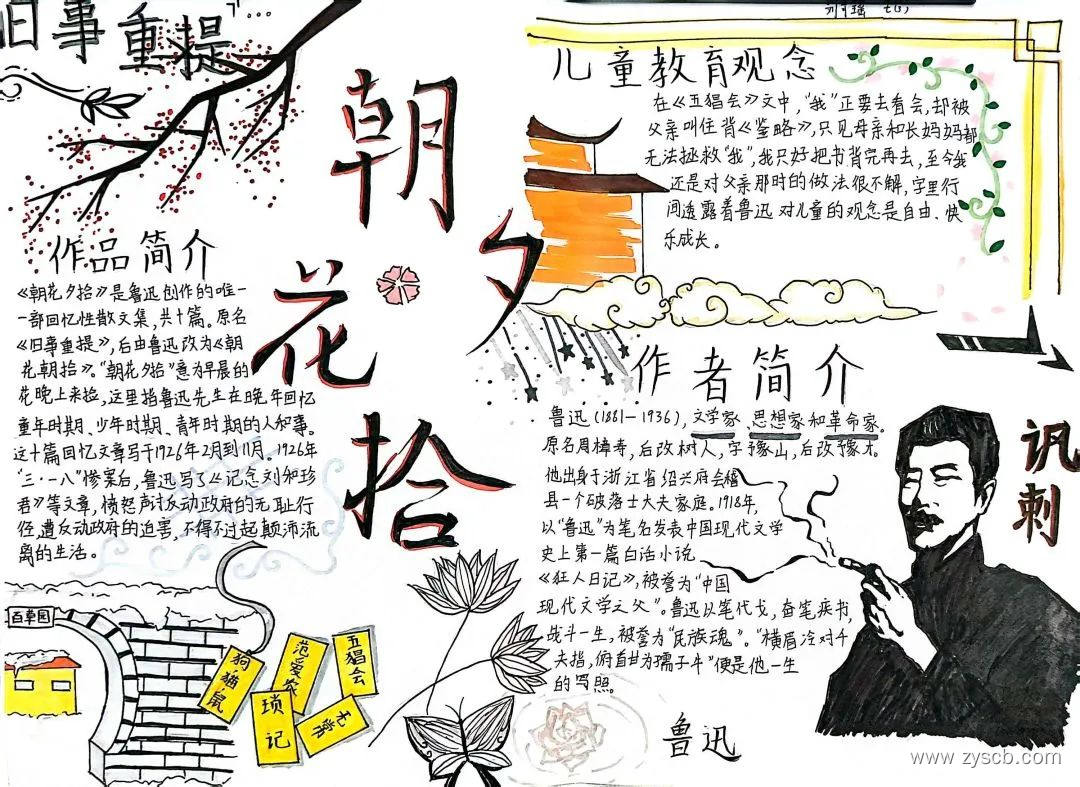 旧事重提
朝花夕拾
作品简介
《朝花夕拾》是鲁迅创作的唯一
一部回忆性散文集,共十篇。原名
《旧事重提》,后由鲁迅改为《朝
花朝拾》。“朝花夕拾”意为早晨的
花晚上来捡,这里指鲁迅先生在晚年回忆
童年时期、少年时期、青年时期的人和事。
这十篇回忆文章写于1926年2月到11月。1926年
“三·一八”惨案后,鲁迅写了《记念刘和珍
君》等文章,愤怒声讨反动政府的无耻行
径,遭反动政府的迫害,不得不过起颠沛流
离的生活。
百草园
狗猫鼠
范爱农
五猖会
琐记
无常
儿童教育观念
在《五猖会》文中,“我”正要去看会,却被
父亲叫住背《鉴略》,只见母亲和长妈妈都
无法拯救“我”,我只好把书背完再去,至今我
还是对父亲那时的做法很不解,字里行
间透露着鲁迅对儿童的观念是自由、快
乐成长。
作者简介
鲁迅(1881-1936),文学家、思想家和革命家。
原名周樟寿,后改树人,字豫山,后改豫才。
他出身于浙江省绍兴府会稽
县一个破落士大夫家庭。1918年,
以“鲁迅”为笔名发表中国现代文学
史上第一篇白话小说
《狂人日记》,被誉为“中国
现代文学之父”。鲁迅以笔代戈,奋笔疾书,
战斗一生,被誉为“民族魂”。“横眉冷对千
夫指,俯首甘为孺子牛”便是他一生
的写照。
讽刺
鲁迅
www.zyscb.com